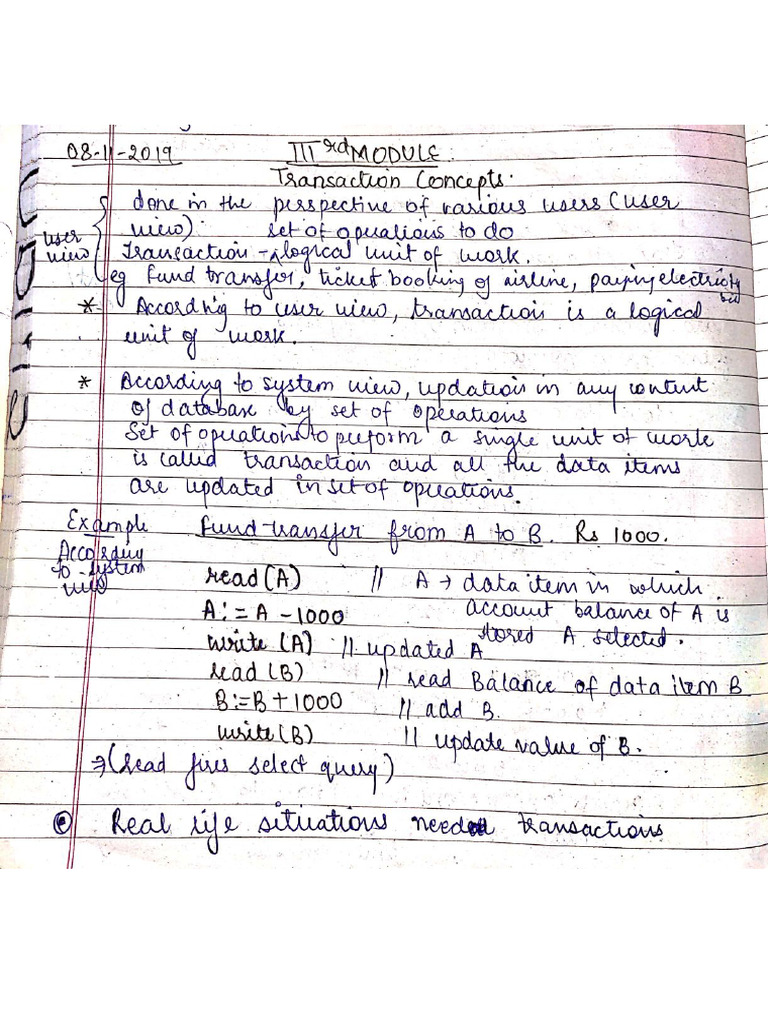 08-11-2019 IIIrd MODULE
Transaction Concepts.
done in the perspective of various users (user
view) set of operations to do
user view
Transaction - logical unit of work.
eg fund transfer, ticket booking of airline, paying electricity bill
* According to user view, transaction is a logical
unit of work.
* According to system view, updation in any content
of database by set of operations
Set of operations to perform a single unit of work
is called transaction and all the data items
are updated in set of operations.
Example Fund transfer from A to B. Rs 1000.
According
to system
view
read (A) // A → data item in which
account balance of A is
A:= A - 1000
stored A selected.
write (A) // updated A
read (B) // read Balance of data item B
B:= B + 1000 // add B.
write (B) // update value of B.
⇒ (read fires select query)
Real life situations need transactions